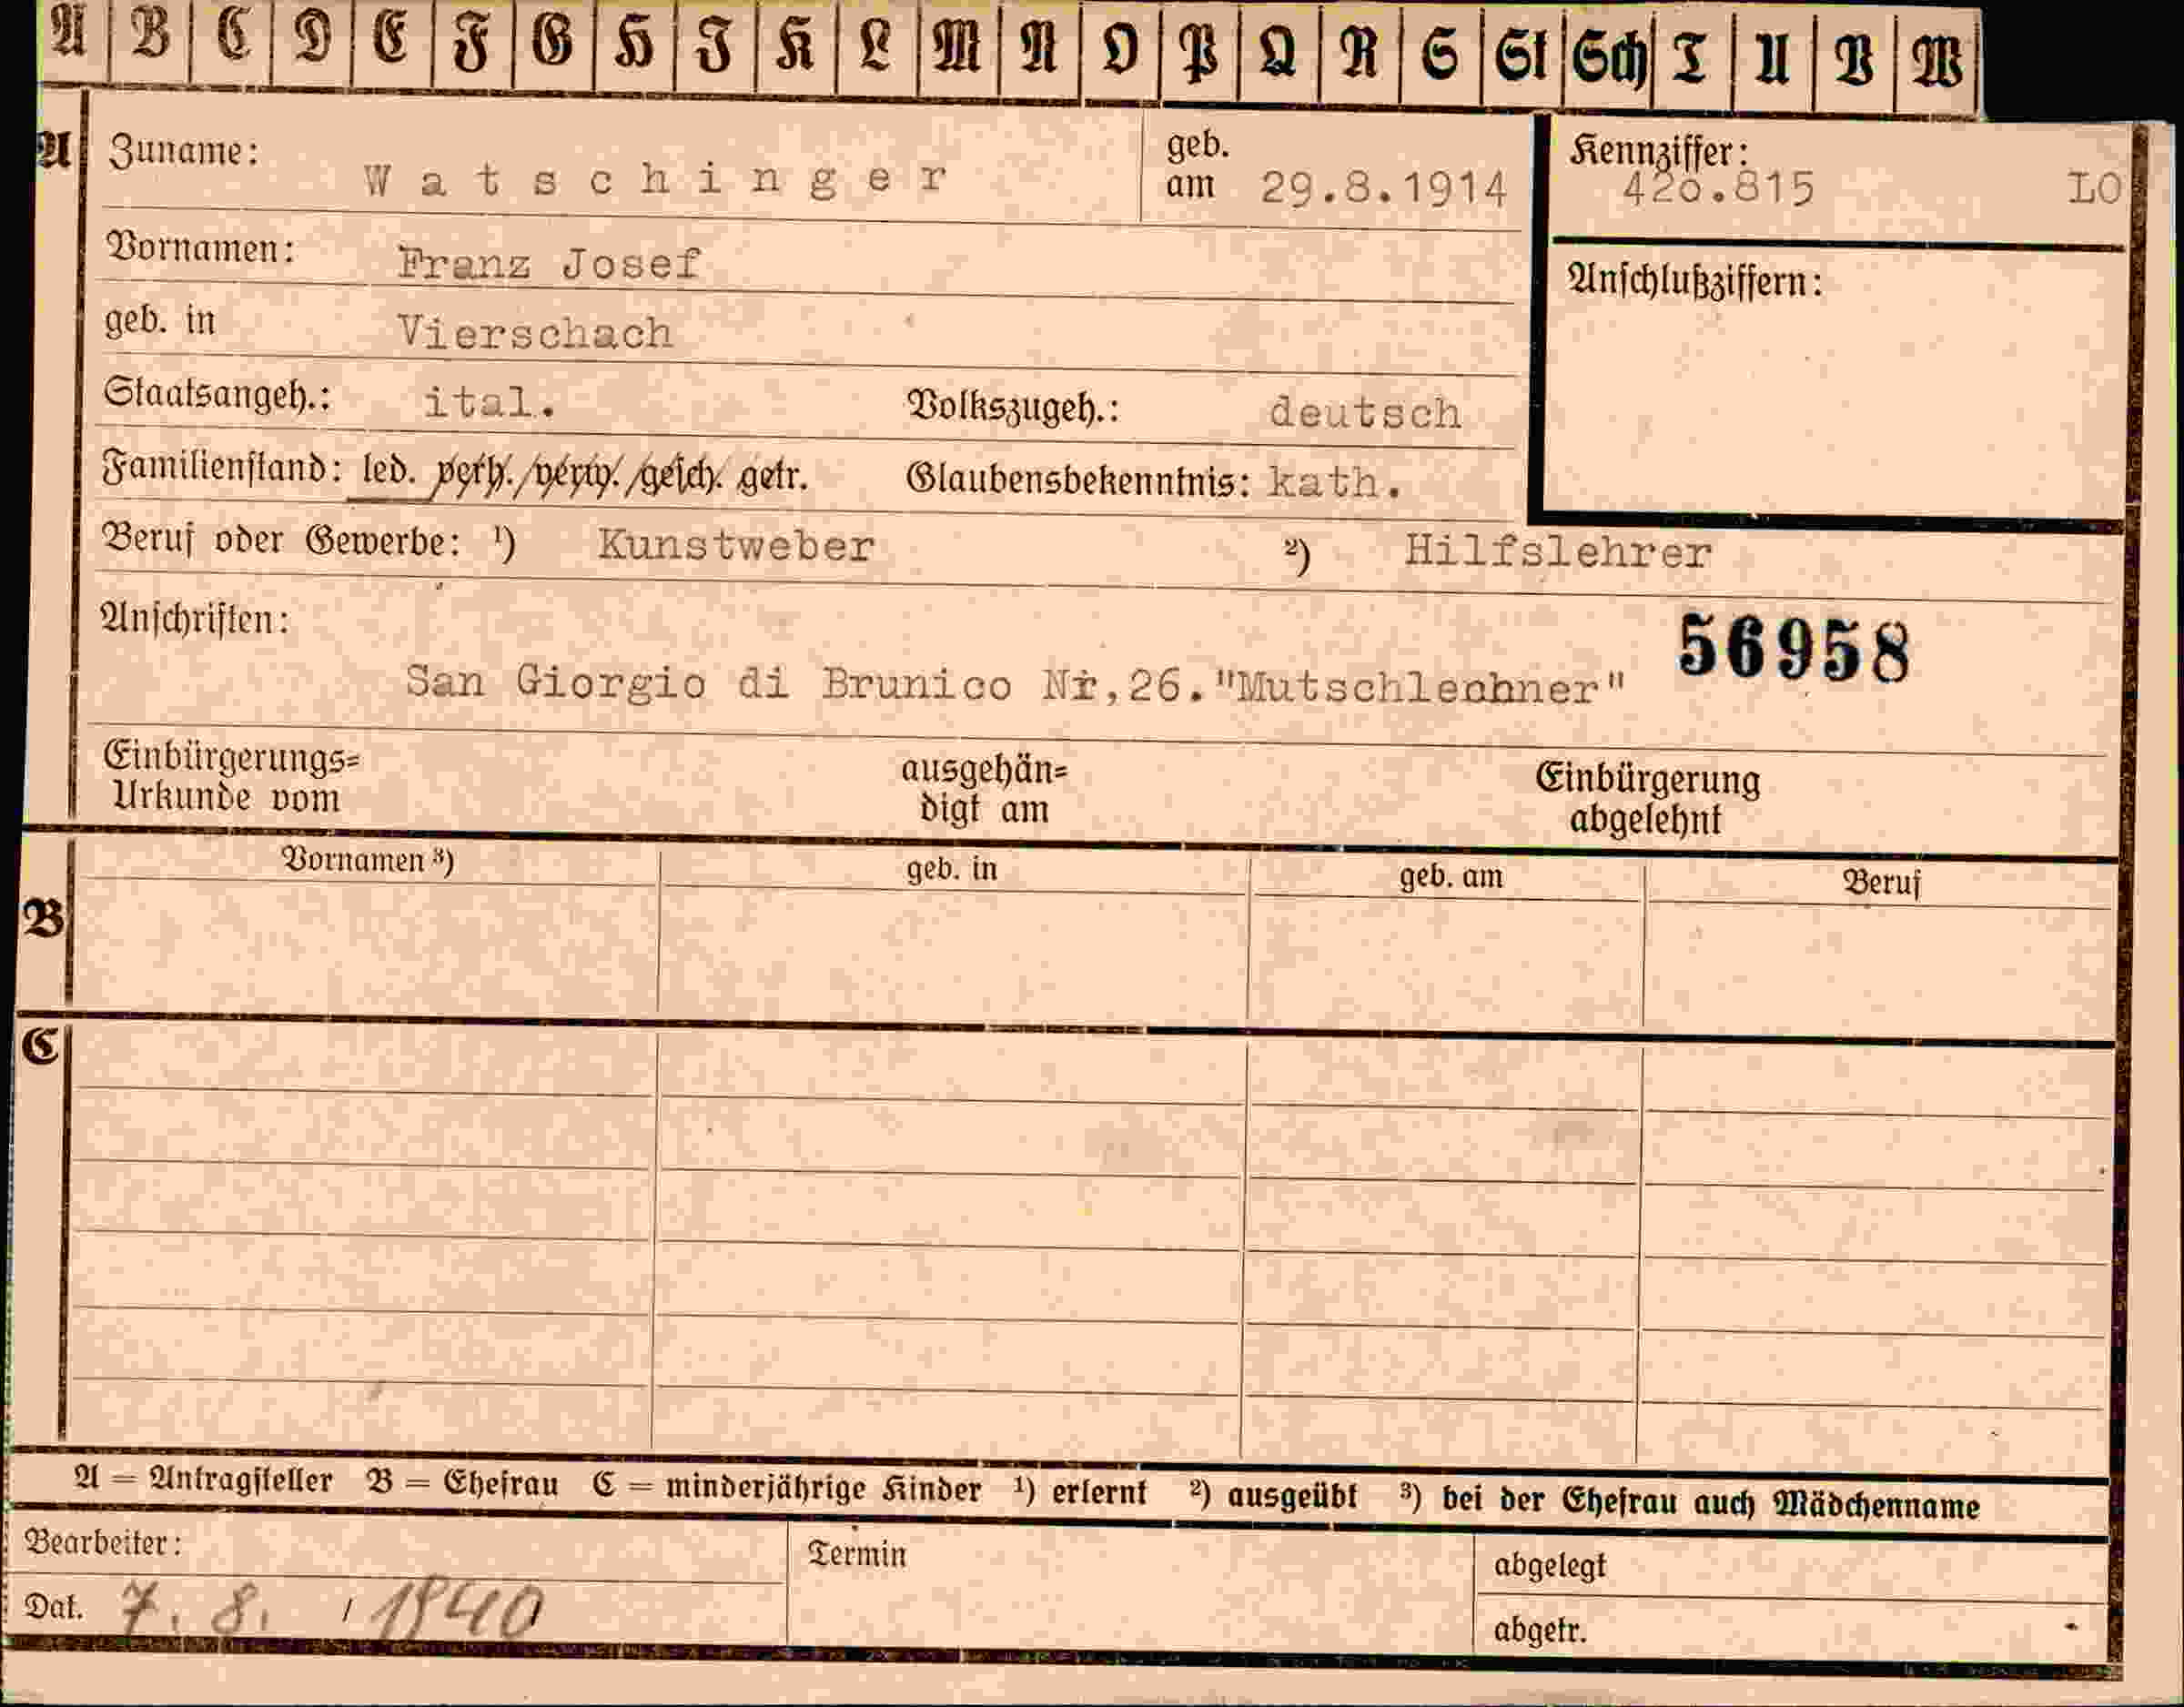 A B C D E F G H J K L M N O P Q R S St Sch T U V W
A Zuname: Watschinger geb. am 29.8.1914 Kennziffer: 420.815 LO
Vornamen: Franz Josef Anschlußziffern:
geb. in Vierschach
Staatsangeh.: ital. Volkszugeh.: deutsch
Familienstand: led. verh./verw./gesch. getr. Glaubensbekenntnis: kath.
Beruf oder Gewerbe: ¹) Kunstweber ²) Hilfslehrer
Anschriften: 56958
San Giorgio di Brunico Nr,26."Mutschlechner"
Einbürgerungs= ausgehän= Einbürgerung
Urkunde vom digt am abgelehnt
Vornamen ³) geb. in geb. am Beruf
B
C
A = Antragsteller B = Ehefrau C = minderjährige Kinder ¹) erlernt ²) ausgeübt ³) bei der Ehefrau auch Mädchenname
Bearbeiter: Termin abgelegt
Dat. 7. 8. / 1940 abgetr.